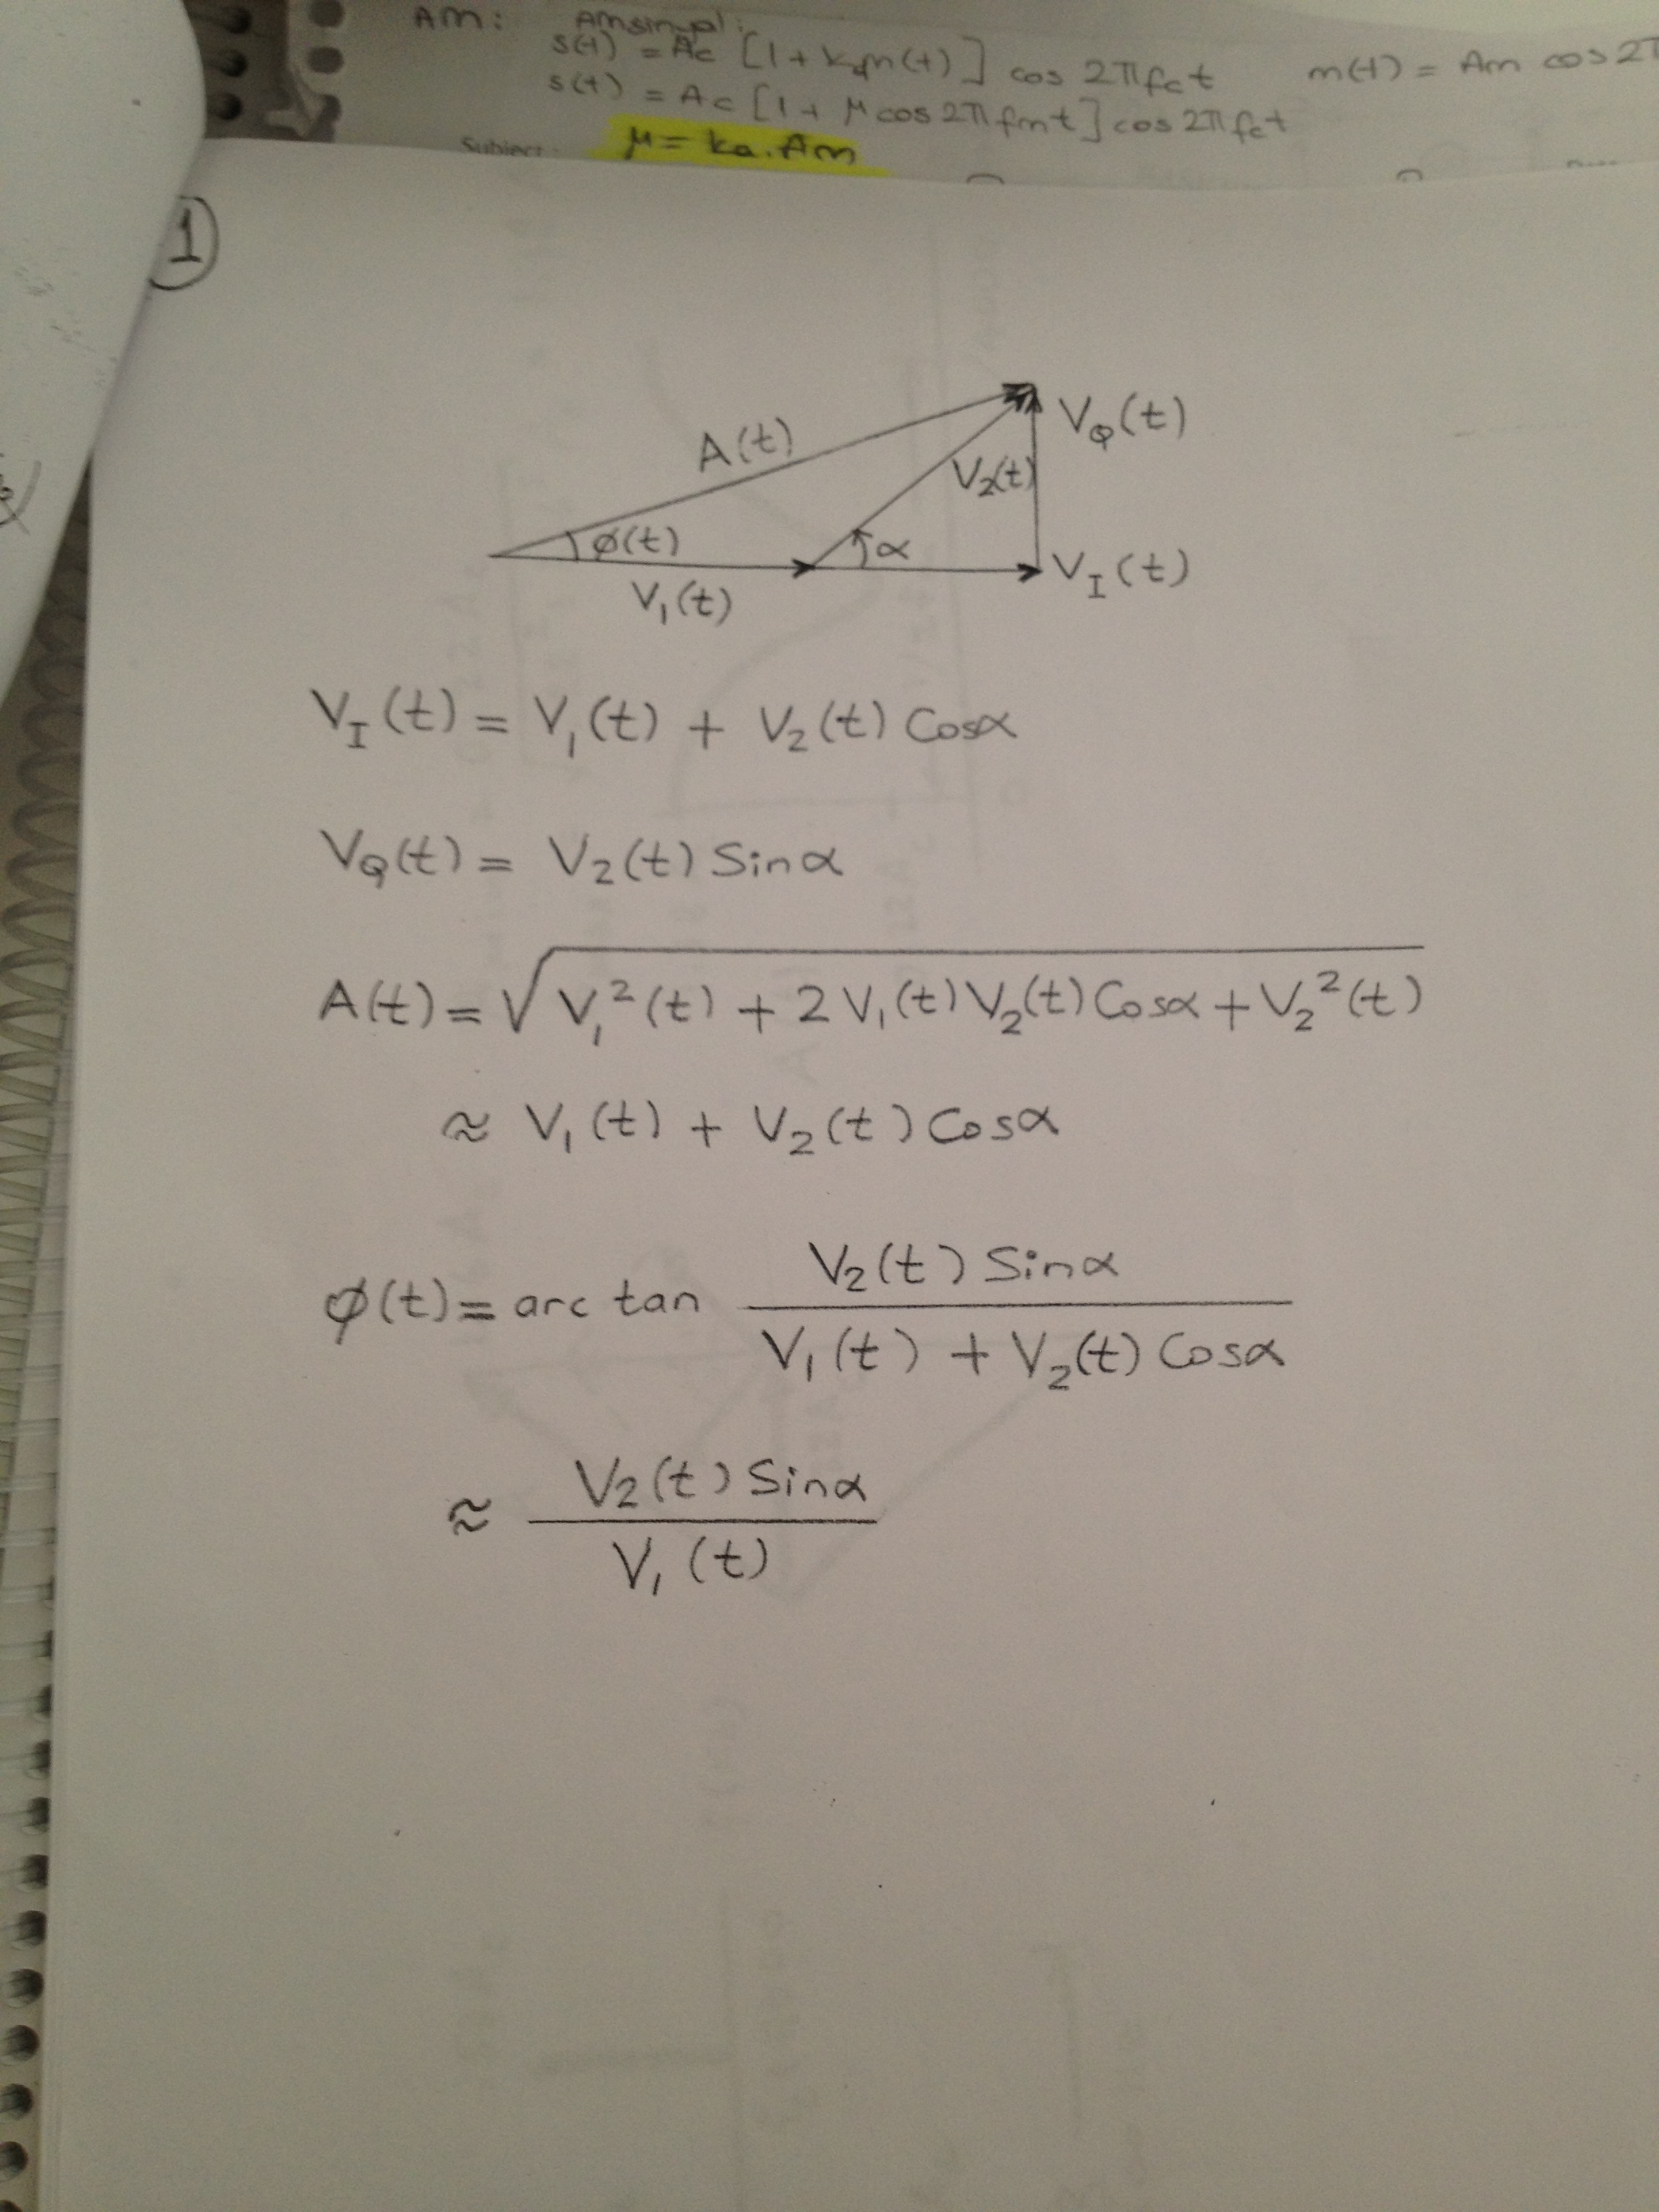 AM: AM sinyal:
s(t) = Ac [1 + kam(t)] cos 2πfct m(t) = Am cos 2π
s(t) = Ac [1 + μ cos 2πfmt] cos 2πfct
Subject: μ = ka.Am
1
A(t)
VQ(t)
V2(t)
ø(t)
α
V1(t)
VI(t)
VI(t) = V1(t) + V2(t) Cosα
VQ(t) = V2(t) Sinα
A(t) = √(V1²(t) + 2V1(t)V2(t)Cosα + V2²(t))
≈ V1(t) + V2(t) Cosα
V2(t) Sinα
ø(t) = arc tan
V1(t) + V2(t) Cosα
V2(t) Sinα
≈
V1(t)